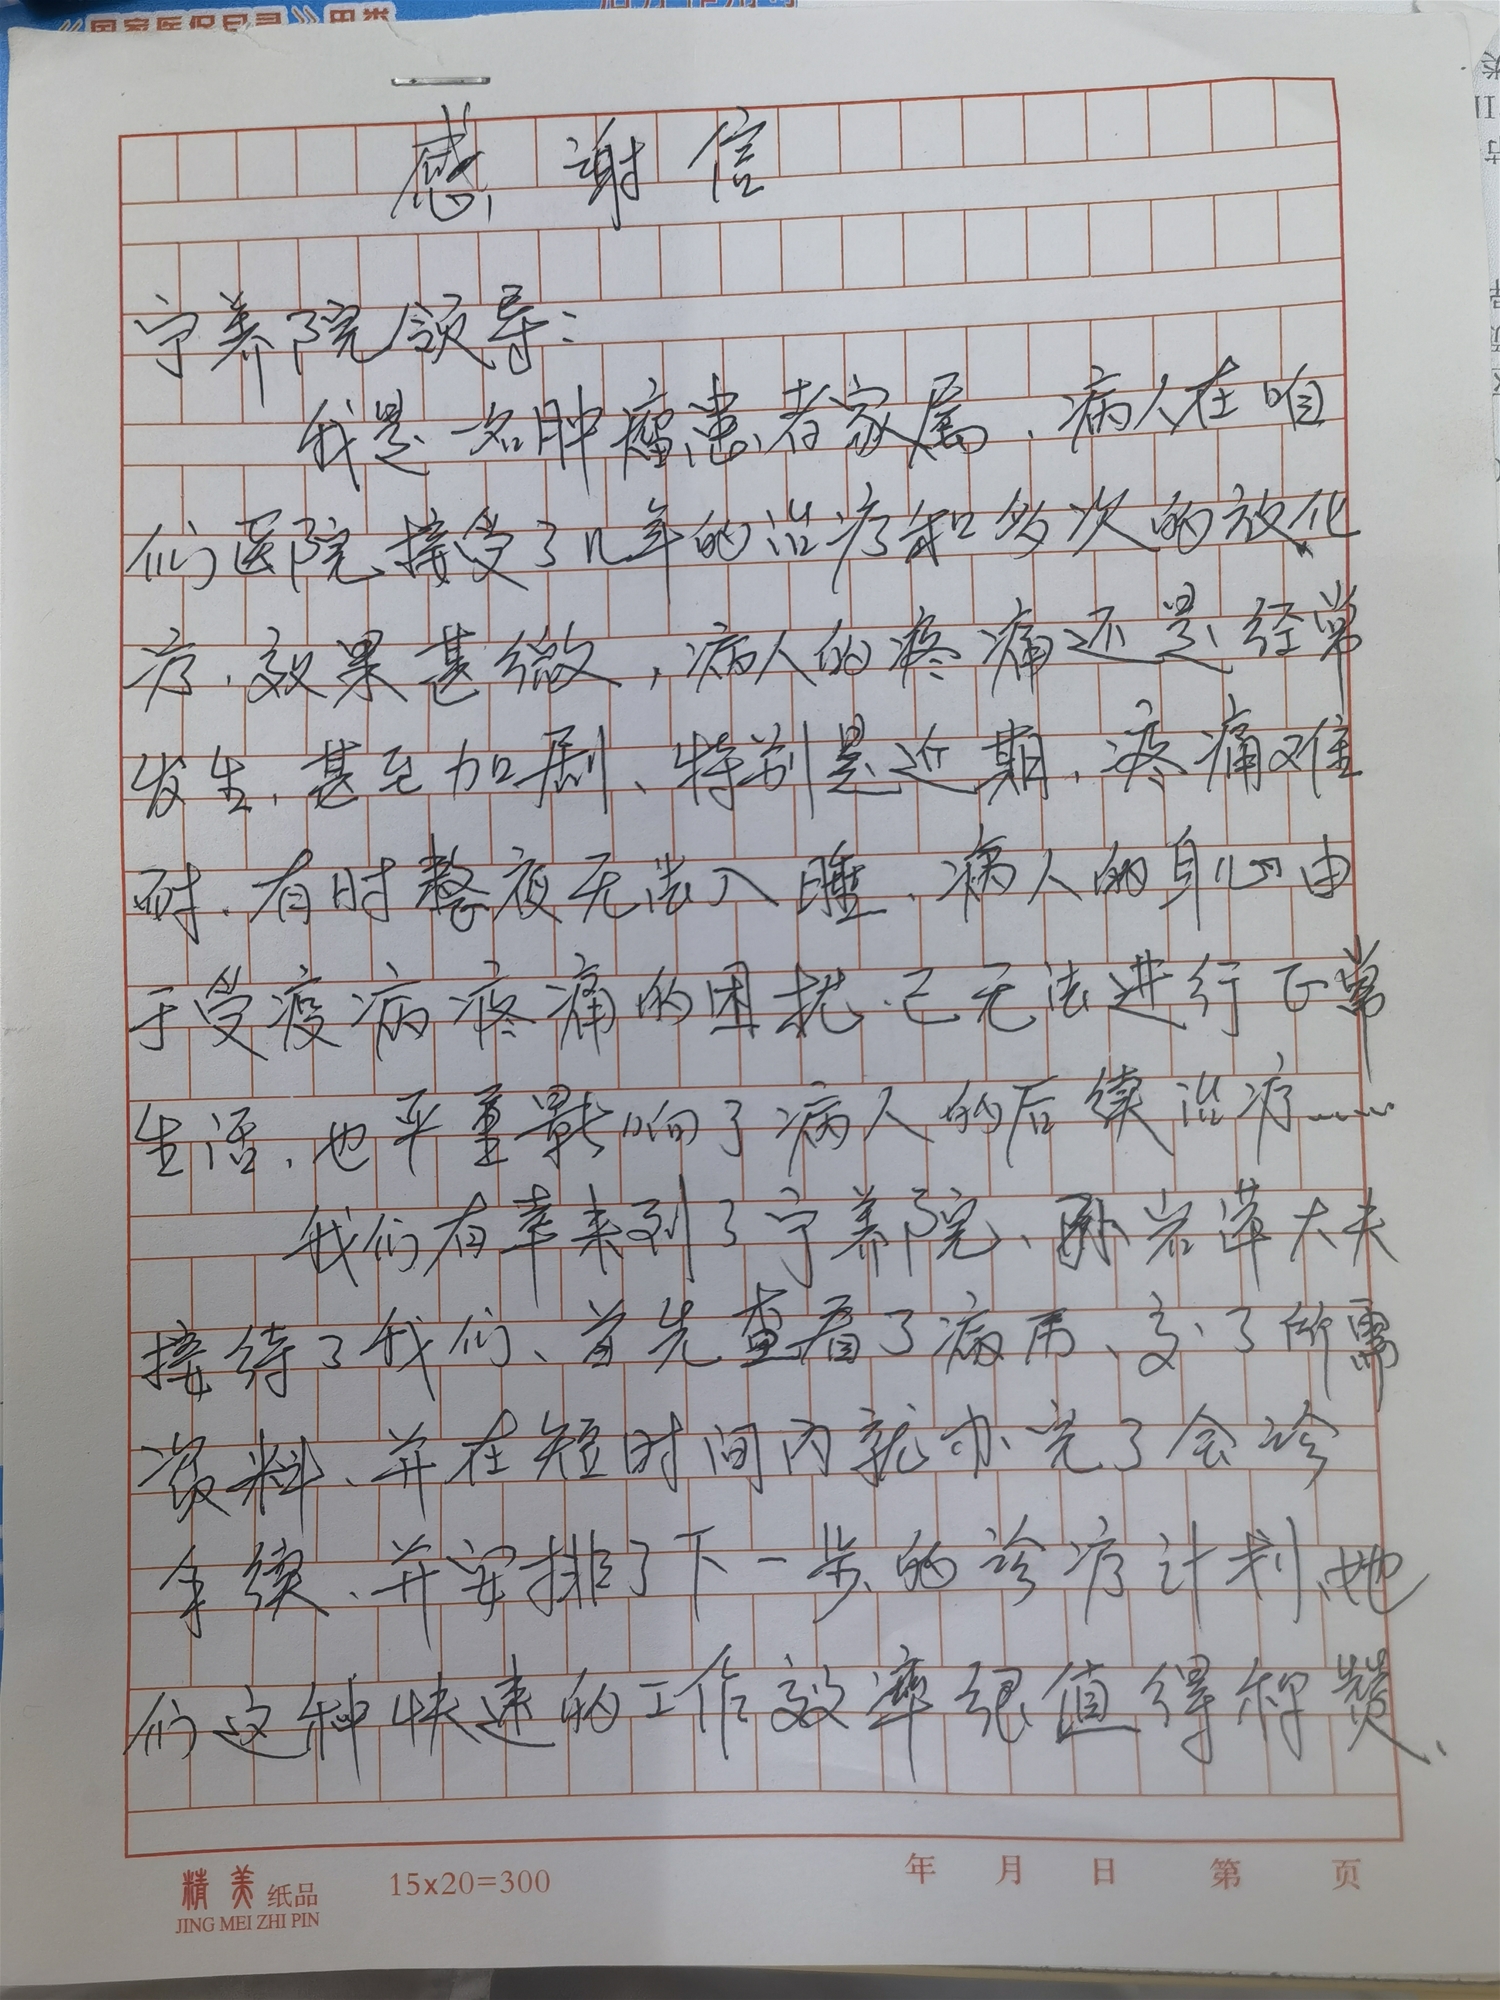 《国家医保目录》甲类
感谢信
宁养院领导：
我是一名肿瘤患者家属、病人在咱
们医院接受了几年的治疗和多次的放化
疗、效果甚微，病人的疼痛还是经常
发生、甚至加剧、特别是近期、疼痛难
耐、有时整夜无法入睡、病人的身心由
于受疫病疼痛的困扰、已无法进行正常
生活、也严重影响了病人的后续治疗……
我们有幸来到了宁养院、孙岩萍大夫
接待了我们、首先查看了病历、交了所需
资料、并在短时间内就办完了会诊
手续、并安排了下一步的诊疗计划、她
们这种快速的工作效率很值得称赞、
精美纸品 15x20=300 年 月 日 第 页
JING MEI ZHI PIN